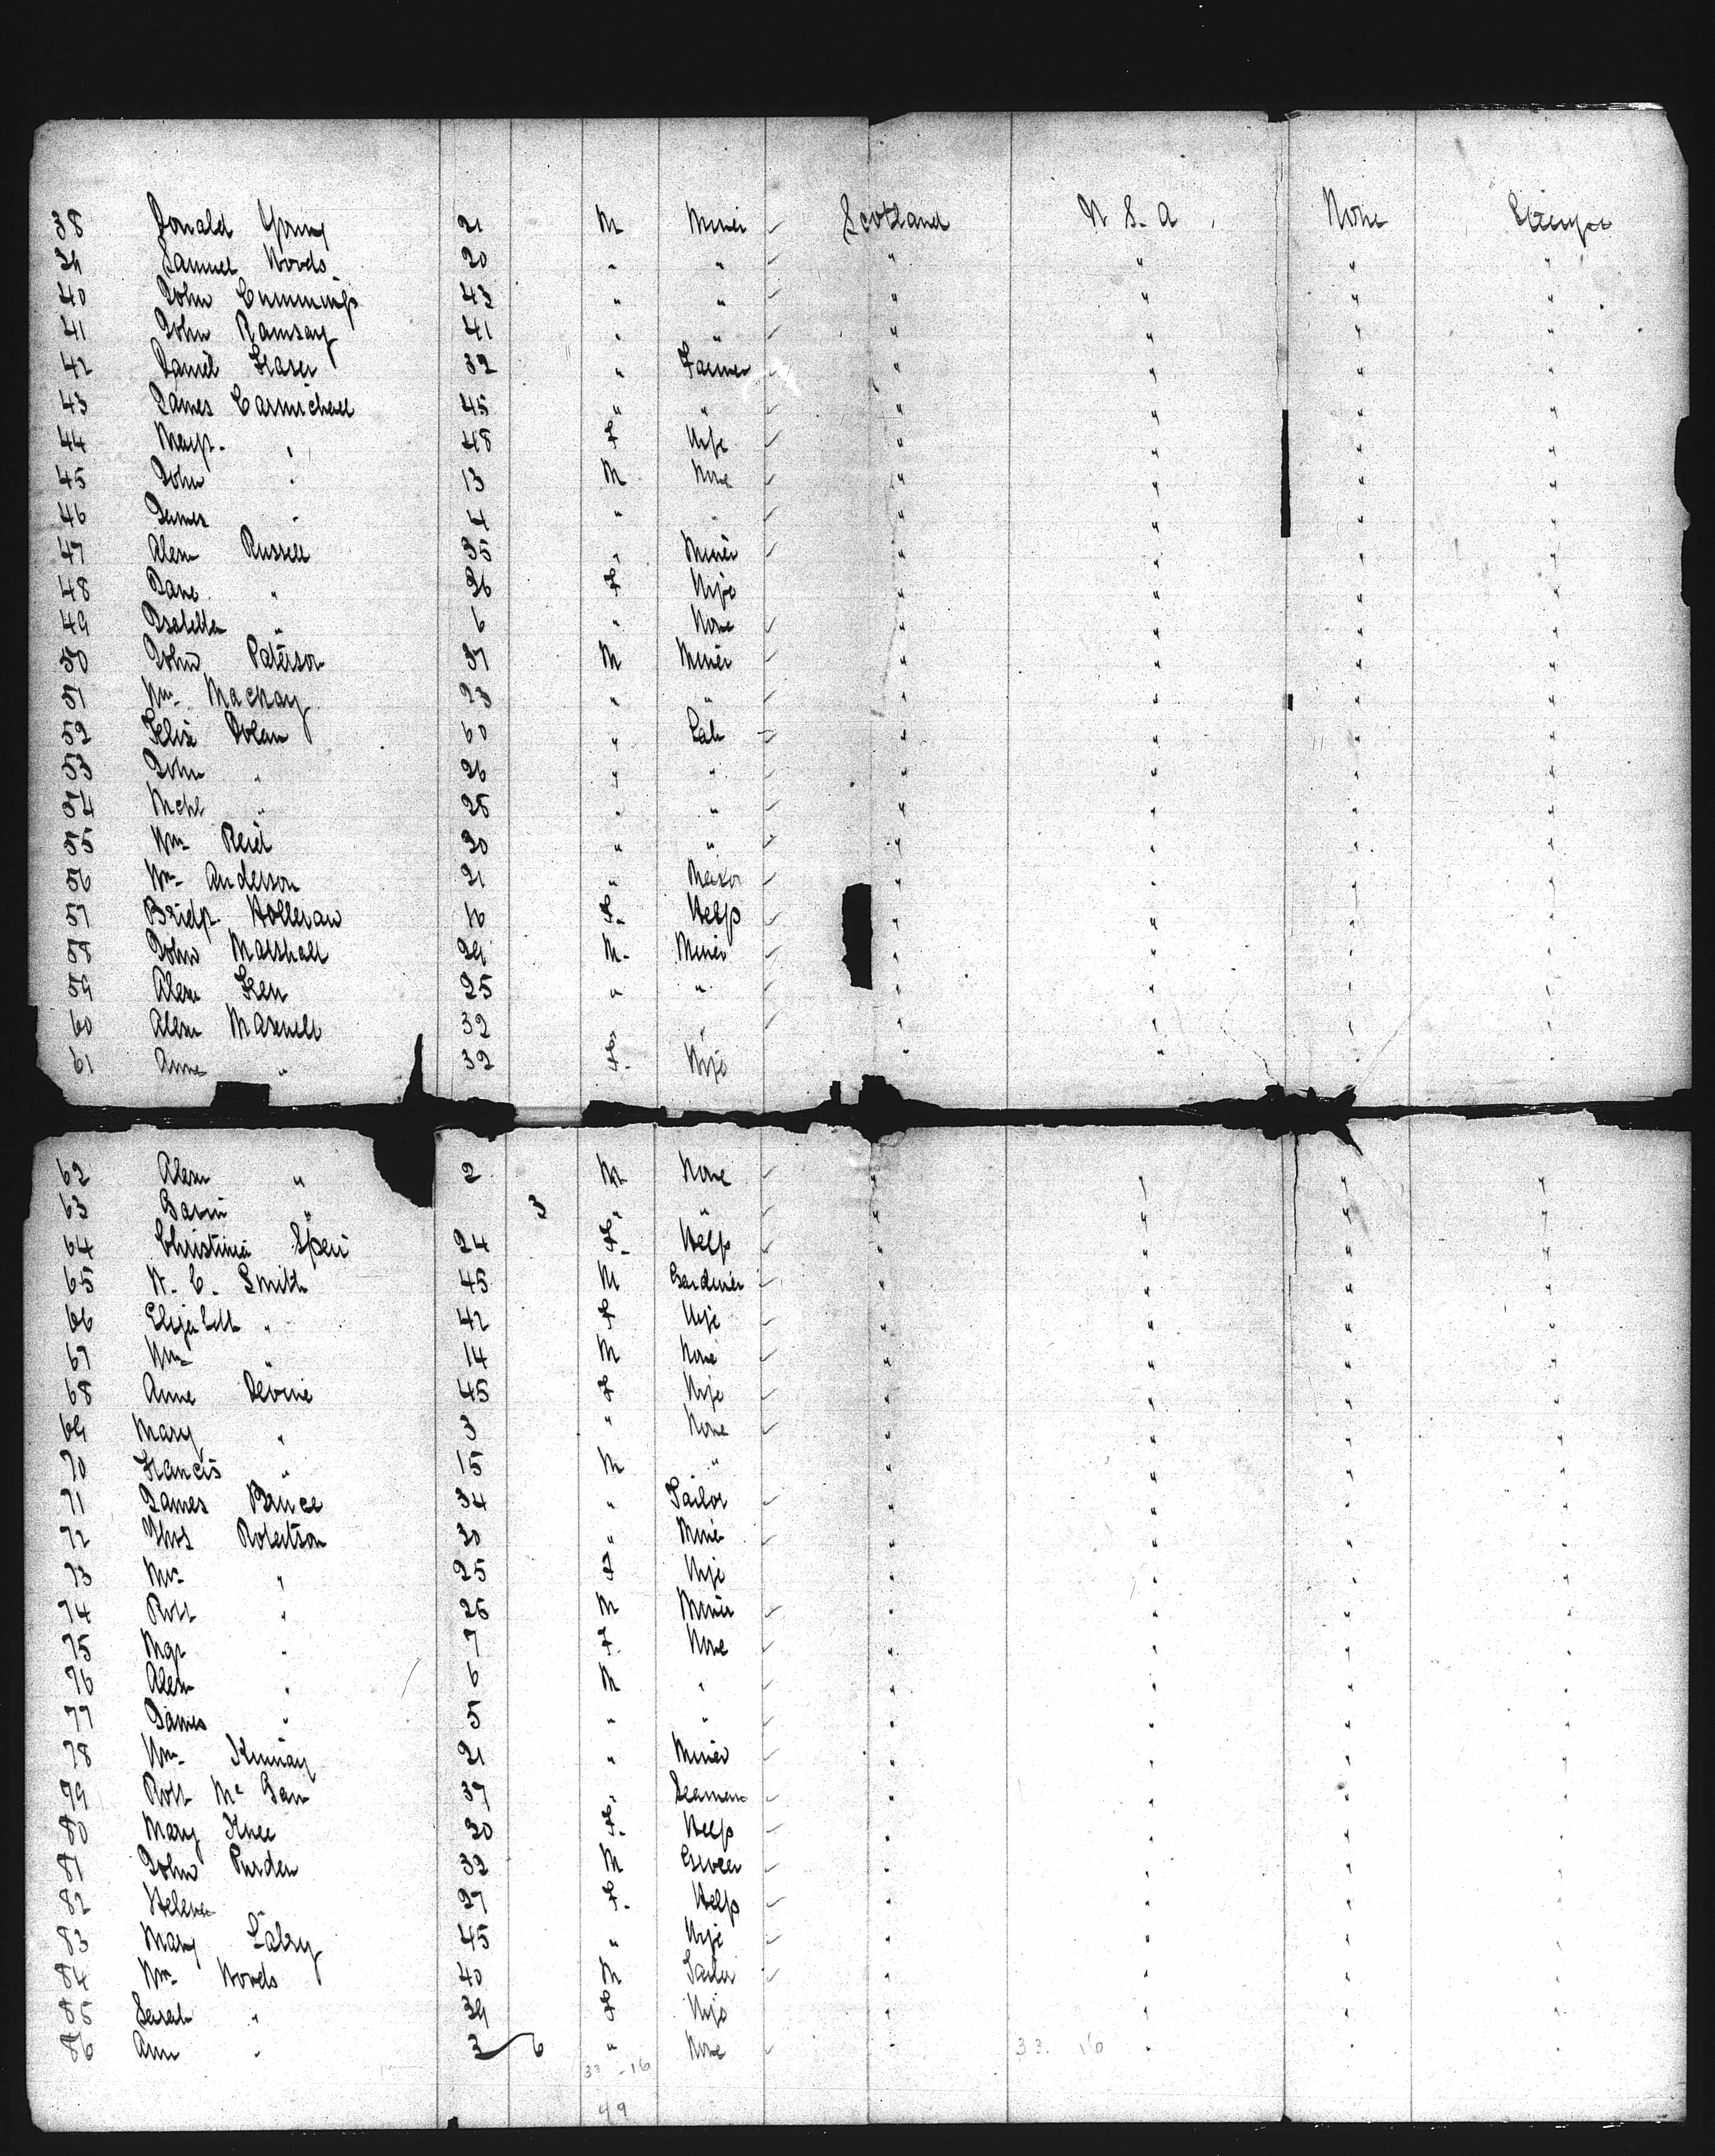 38 Donald Young 21 M Miner Scotland U S. A None Steerage
39 Samuel Woods 20 " " " " " "
40 John Cummings 43 " " " " " "
41 John Ramsay 41 " " " " " "
42 Daniel Fraser 32 " Farmer " " " "
43 James Carmichael 45 " " " " " "
44 Margt. " 48 F Wife " " " "
45 John " 13 M None " " " "
46 James " 4 " " " " " "
47 Alexr Russell 35 " Miner " " " "
48 Jane " 26 F Wife " " " "
49 Isabella " 6 " None " " " "
50 John Paterson 37 M Miner " " " "
51 Wm Mackay 23 " " " " " "
52 Felix Dolan 60 " Lab " " " "
53 John " 26 " " " " " "
54 Mchl " 25 " " " " " "
55 Wm Reid 20 " " " " " "
56 Wm Anderson 21 " " " " "
57 Bridgt. Holleran F. Help " " " "
58 John Marshall 24 M. Miner " " " "
59 Alexr 25 " " " " " "
60 Alexr Maxwell 32 " " " " "
61 Anne " 32 F. Wife " " " "
62 Alexr " 2 M None " " " "
63 Gavin " 3 " " " " " "
64 Christina Speir 24 F. Help " " " "
65 W. C. Smith 45 M Gardener " " " "
66 Elizabeth " 42 F Wife " " " "
67 Wm " 14 M None " " " "
68 Anne Devine 45 F Wife " " " "
69 Mary " 3 " None " " " "
70 Francis " 15 M " " " " "
71 James Bruce 34 " Tailor " " " "
72 Thos Robertson 30 " Miner " " " "
73 Mrs " 25 F Wife " " " "
74 Robt " 26 M Miner " " " "
75 Mgt " 7 F. None " " " "
76 Alexr " 6 M " " " " "
77 James " 5 " " " " " "
78 Wm 21 " Miner " " " "
79 Robt Mc 37 " Seaman " " " "
80 Mary 20 F. Help " " " "
81 John Purden 32 M Grocer " " " "
82 Helen " 27 F. Help " " " "
83 Mary 45 " Wife " " " "
84 Wm Woods 40 M Tailor " " " "
85 Sarah " 39 F Wife " " " "
86 Ann " 3 6 " None " 33. 16 " " "
33 - 16
49